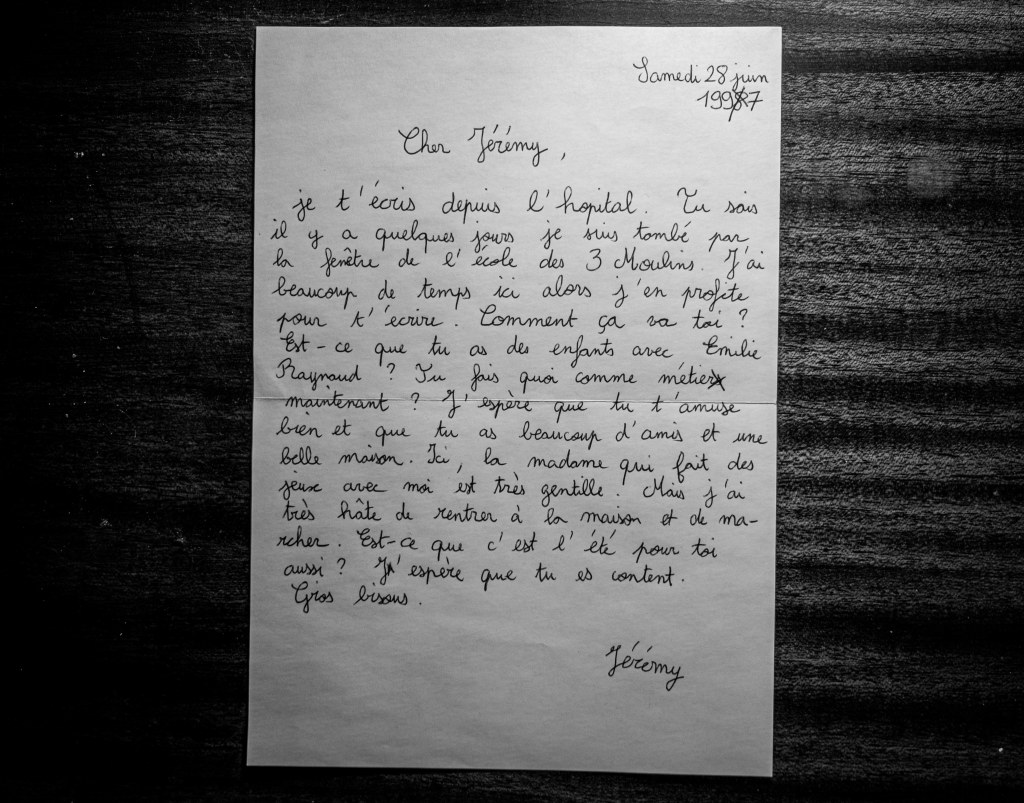 Samedi 28 juin
1997
Cher Jérémy,
je t'écris depuis l'hopital. Tu sais
il y a quelques jours je suis tombé par
la fenêtre de l'école des 3 Moulins. J'ai
beaucoup de temps ici alors j'en profite
pour t'écrire. Comment ça va toi ?
Est-ce que tu as des enfants avec Emilie
Raynaud ? Tu fais quoi comme métier
maintenant ? J'espère que tu t'amuse
bien et que tu as beaucoup d'amis et une
belle maison. Ici, la madame qui fait des
jeux avec moi est très gentille. Mais j'ai
très hâte de rentrer à la maison et de ma-
rcher. Est-ce que c'est l'été pour toi
aussi ? J'espère que tu es content.
Gros bisous.
Jérémy